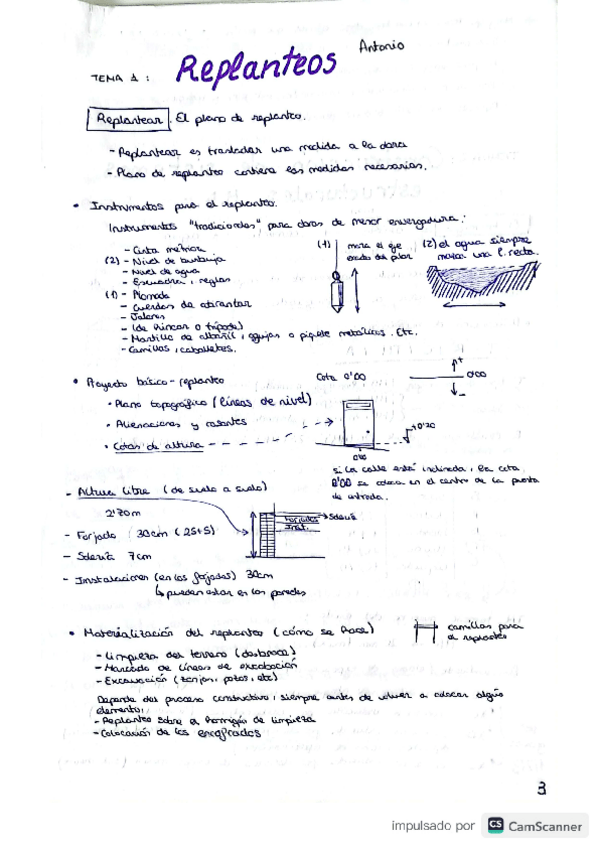 Antonio
TEMA 1 : Replanteos
Replantear. El plano de replanteo.
- Replantear es trasladar una medida a la obra
- Plano de replanteo contiene las medidas necesarias.
• Instrumentos para el replanteo.
Instrumentos "tradicionales" para obras de menor envergadura:
- Cinta métrica
(2) - Nivel de burbuja
- Nivel de agua
- Escuadra, reglas
(1) - Plomada
- Cuerdas de atirantar
- Jalones
- (de hincar o trípode)
- Martillo de albañil, agujas o piquete metálicos. Etc.
- Camillas, caballetes.
(1) marca el eje
exacto del pilar
(2) el agua siempre
marca una l. recta.
• Proyecto básico - replanteo
Cota 0'00
+
0'00
-
• Plano topográfico (líneas de nivel)
• Alineaciones y rasantes
• Cotas de altura
+0'20
si la calle está inclinada, la cota
0'00 se coloca en el centro de la puerta
de entrada.
- Altura libre (de suelo a suelo)
2'70m
- Forjado 30cm (25+5)
- Solería 7cm
- Instalaciones (en los forjados) 30cm
↳ pueden estar en las paredes
Forjados
Inst.
Solería
• Materialización del replanteo (cómo se hace)
camillas para
el replanteo
- Limpieza del terreno (desbroce)
- Marcado de líneas de excavación
- Excavación (zanjas, pozos, etc)
Depende del proceso constructivo, siempre antes de volver a colocar algún
elemento:
- Replanteo sobre el hormigón de limpieza
- Colocación de los encofrados
3
impulsado por CS CamScanner